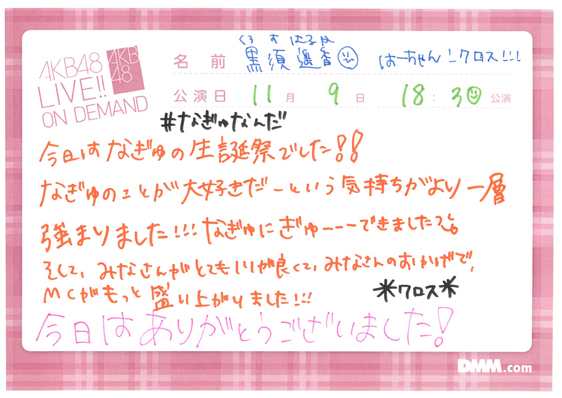 AKB48
LIVE!!
ON DEMAND
AKB
48
くろ す はるか
名前 黒須遥香 はーちゃん!クロス!!!
公演日 11月 9日 18:30公演
#なぎゅなんだ
今日はなぎゅの生誕祭でした!!
なぎゅのことが大好きだーという気持ちがより一層
強まりました!!!なぎゅにぎゅーーーできましたし。
そして、みなさんがとてもノリが良くて、みなさんのおかげで、
MCがもっと盛り上がりました!!!
*クロス*
今日はありがとうございました!
DMM.com